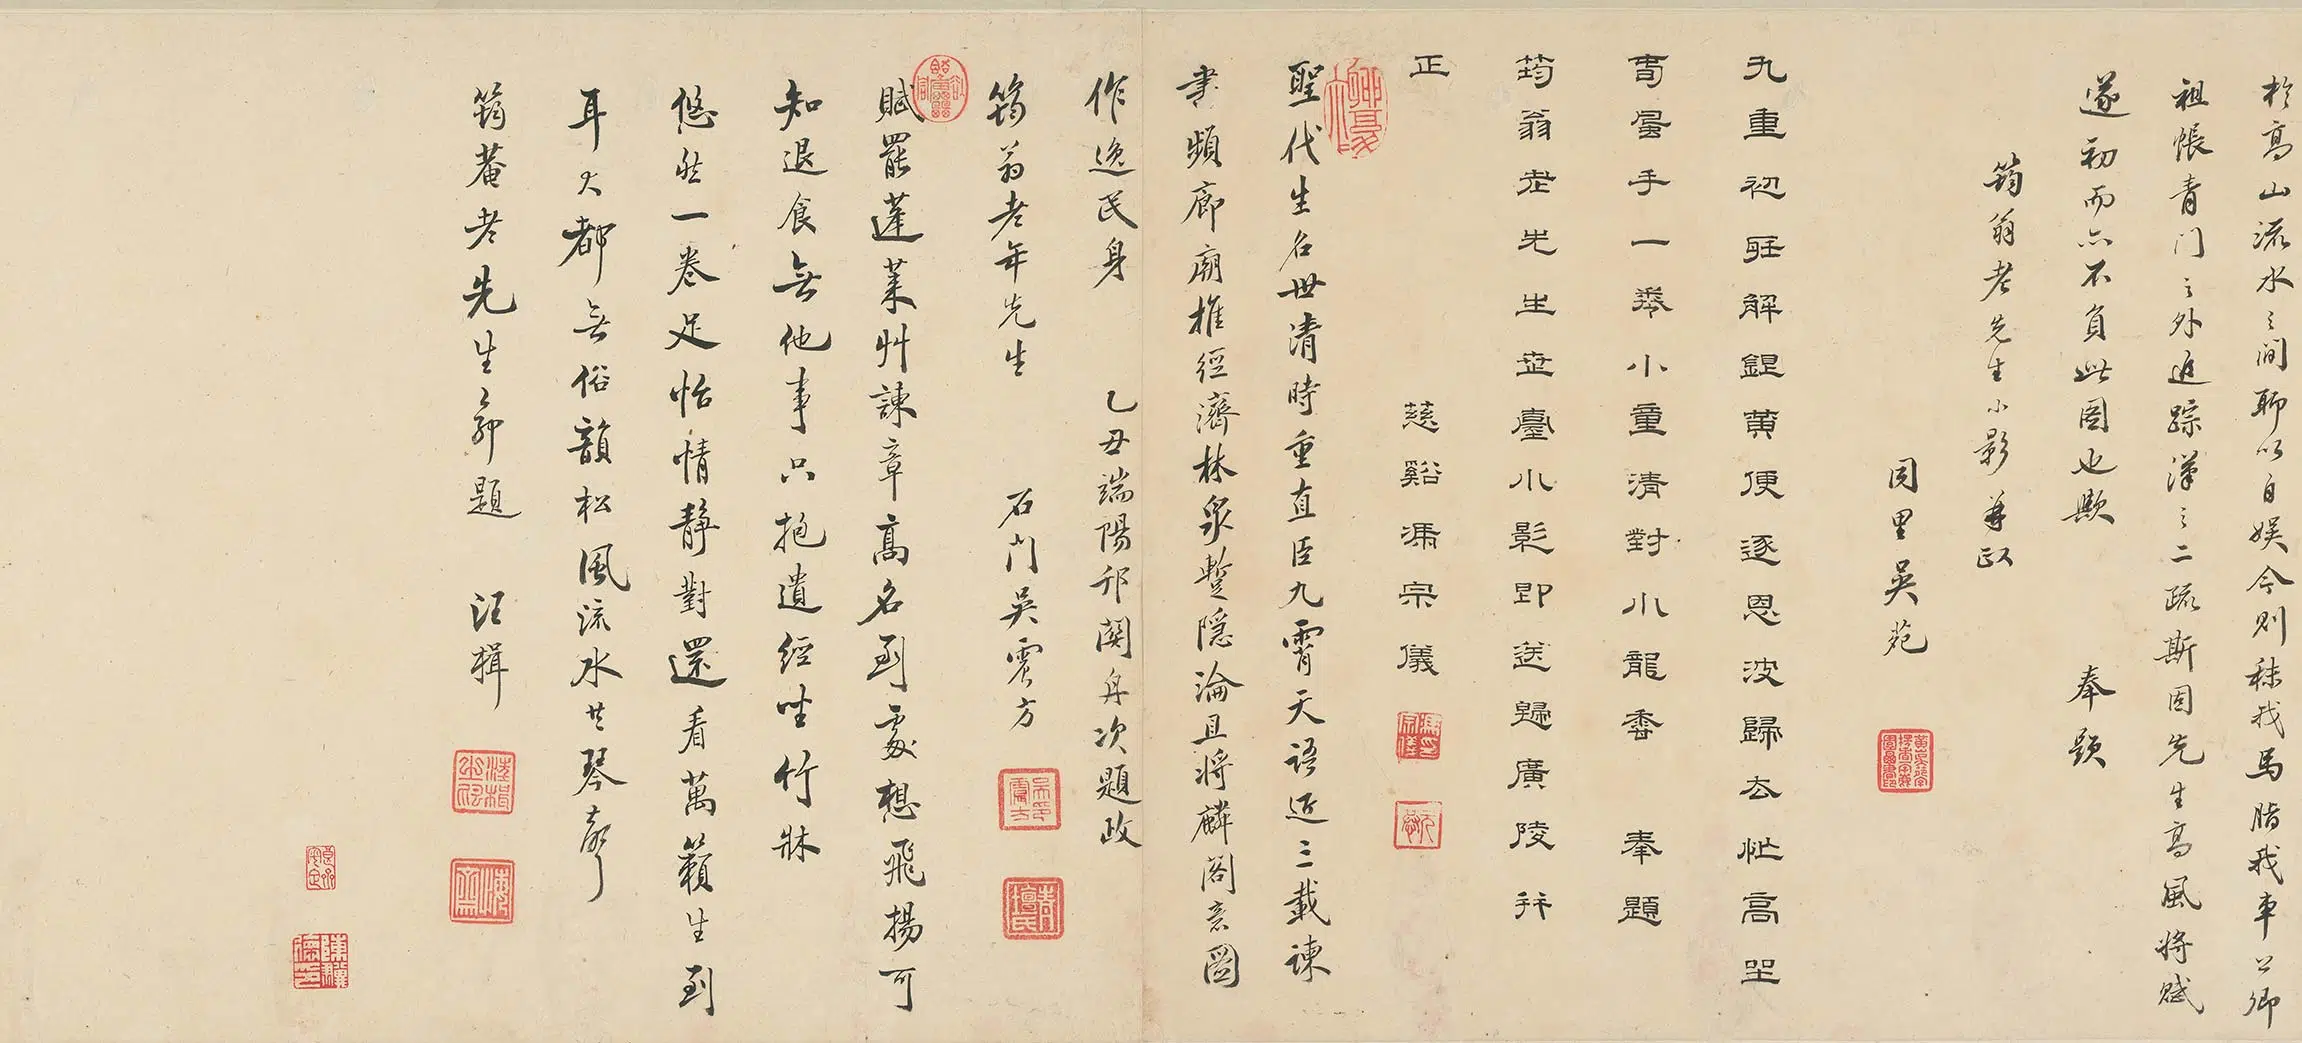 於高山流水之間聊以自娱今則秣我馬脂我車公卿
祖帳青门之外追踪漢之二疏斯固先生高風将赋
遂初而亦不負此图也歟 奉題
筠翁老先生小影并政
同里吴苑
九重初旺解鋥黄便逐恩波歸去忙高坐
畫手一拳小童清對小龍香 奉題
筠翁老先生莅臺小影即送歸廣陵并
正 慈谿馮宗儀
聖代生名世清時重直臣九霄天语近三載諫
書頻廊廟推經濟林泉暫隱淪且将麟阁意圖
作逸民身 乙丑端陽邗関舟次題政
筠翁老年先生 石门吴震方
賦罷蓬萊艸諫章高名到處想飛揚可
知退食無他事只抱遺經坐竹牀
悠然一卷足怡情静對還看萬籟生到
耳大都無俗韻松風流水共琴聲
筠菴老先生命題 汪楫